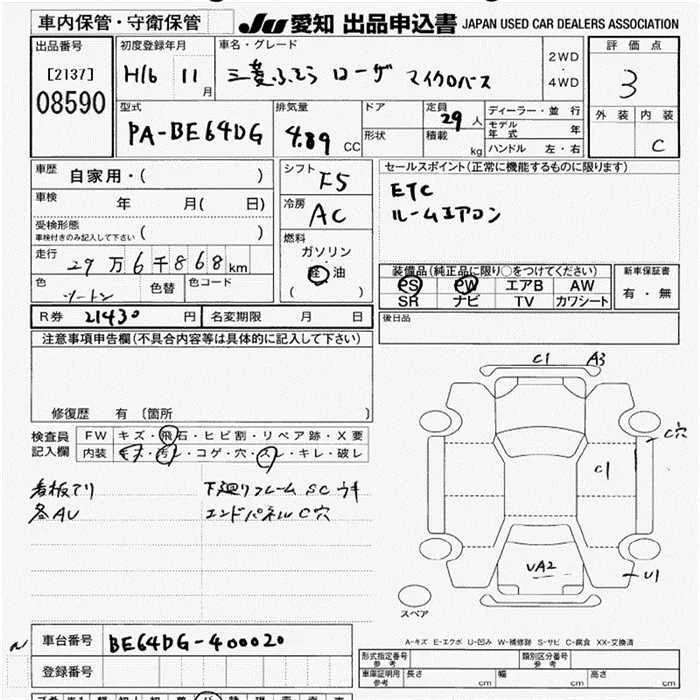 車内保管・守衛保管 JU 愛知 出品申込書 JAPAN USED CAR DEALERS ASSOCIATION
出品番号 初度登録年月 車名・グレード 評価点
[2137] H16 11月 三菱ふそう ローザ マイクロバス 2WD・4WD 3
08590
型式 排気量 ドア 定員 29人 ディーラー・並行 外装 内装
PA-BE64DG 4.89 CC 形状 積載 kg モデル年式 年 C
ハンドル 左・右
車歴 自家用・( ) シフト F5 セールスポイント(正常に機能するものに限ります)
車検 年 月( 日) 冷房 AC ETC
受検形態 ルームエアコン
車検付きのみ記入して下さい ( )
走行 29万6千868km 燃料 ガソリン 軽油 ( )
装備品(純正品に限り○をつけてください) 新車保証書
色 ツートン 色替 色コード PS PW エアB AW 有・無
SR ナビ TV カワシート
R券 21430円 名変期限 月 日 後日品
注意事項申告欄(不具合内容等は具体的に記入して下さい)
C1 A3
修復歴 有 〔箇所 〕
検査員記入欄 FW キズ・飛石・ヒビ割・リペア跡・X要
内装 キズ・汚レ・コゲ・穴・スレ・キレ・破レ
C穴
C1
看板アリ 下廻りフレーム SC ウキ
各AU エンドパネルC穴
UA2
U1
スペア
車台番号 BE64DG-400020
A-キズ E-エクボ U-凹み W-補修跡 S-サビ C-腐食 XX-交換済
登録番号 形式指定番号 参考 類別区分番号 参考
車庫証明用 参考 長さ cm 幅 cm 高さ cm